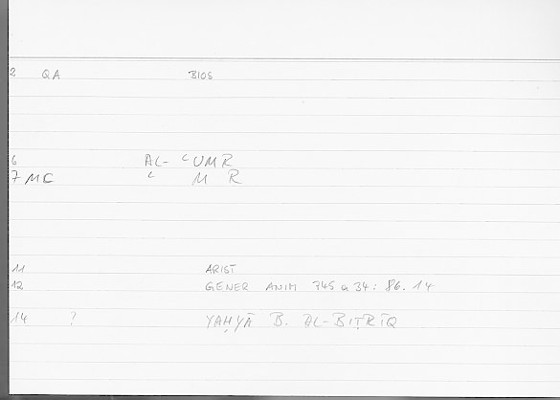 2 QA BIOS
6 AL- ʿUMR
7 MC ʿ M R
11 ARIST
12 GENER ANIM 745 a 34: 86.14
14 ? YAḤYĀ B. AL-BIṬRĪQ